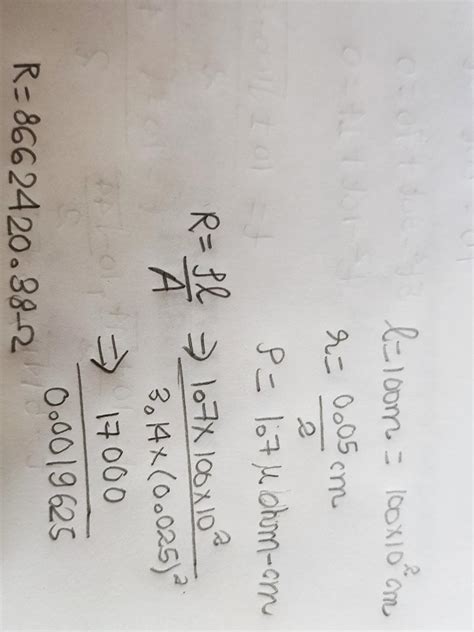 l = 100m = 100×10² cm
r = 0.05/2 cm
ρ = 1.7 μ ohm-cm
R = ρl/A ⇒ 1.7×100×10²/3.14×(0.025)²
⇒ 17000/0.0019625
R = 8662420.38 Ω